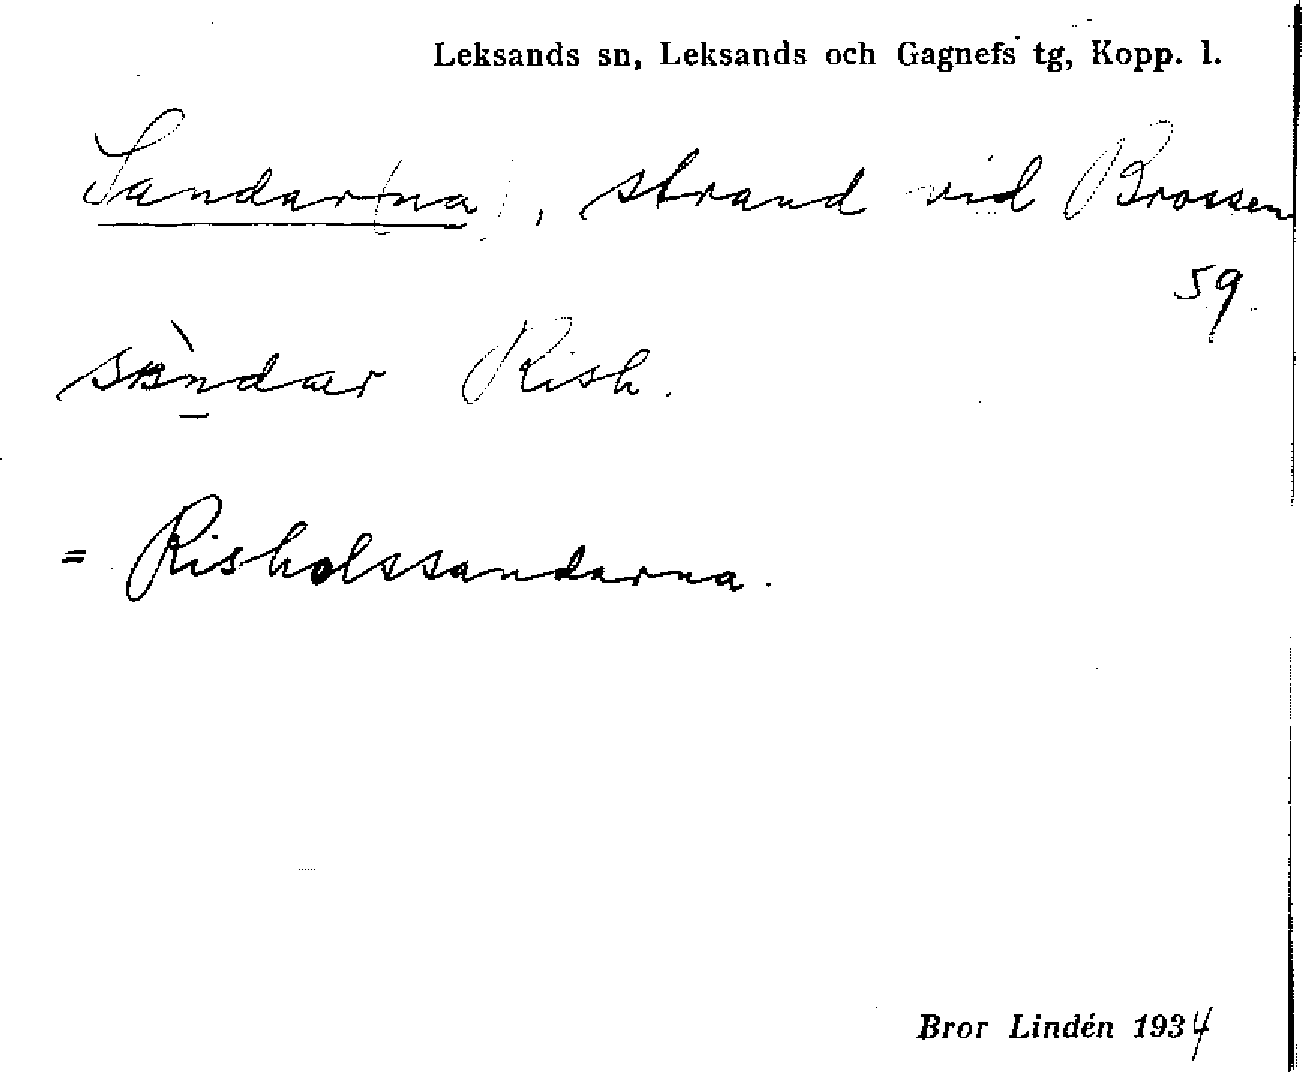 Leksands sn, Leksands och Gagnefs tg, Kopp. l.
Sandar(na), strand vid Brossen
59.
sàndar Rish.
= Risholssandarna.
Bror Lindén 1934